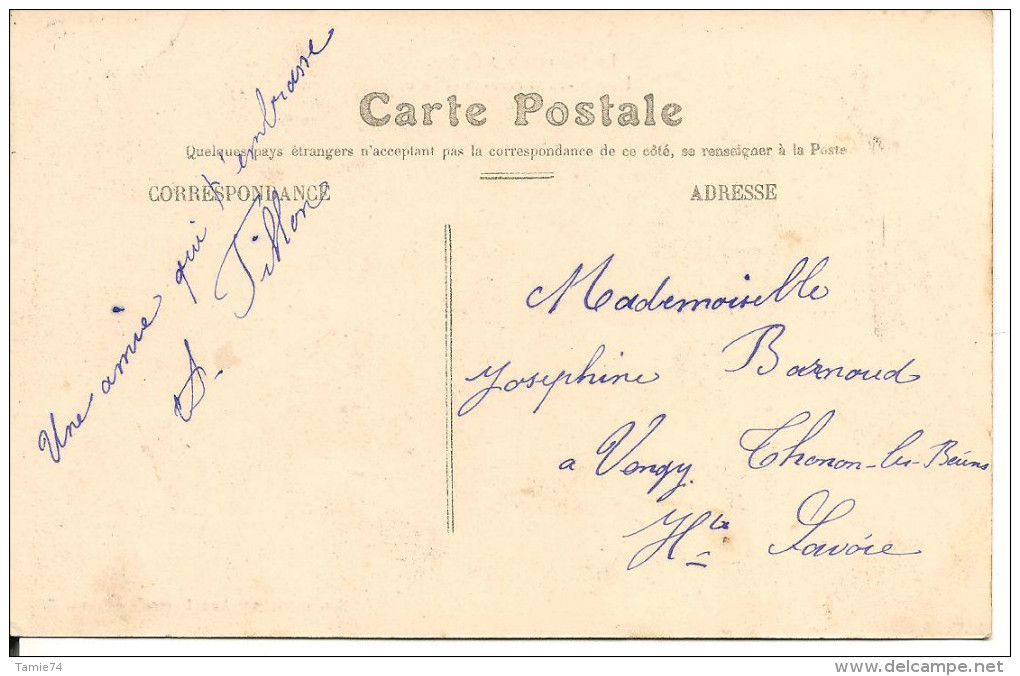 Carte Postale
Quelques pays étrangers n'acceptant pas la correspondance de ce côté, se renseigner à la Poste
CORRESPONDANCE
ADRESSE
Une amie qui t'embrasse
Mademoiselle
Josephine Barnoud
a Vongy. Thonon-les-Bains
Hte Savoie
Tamie74
www.delcampe.net